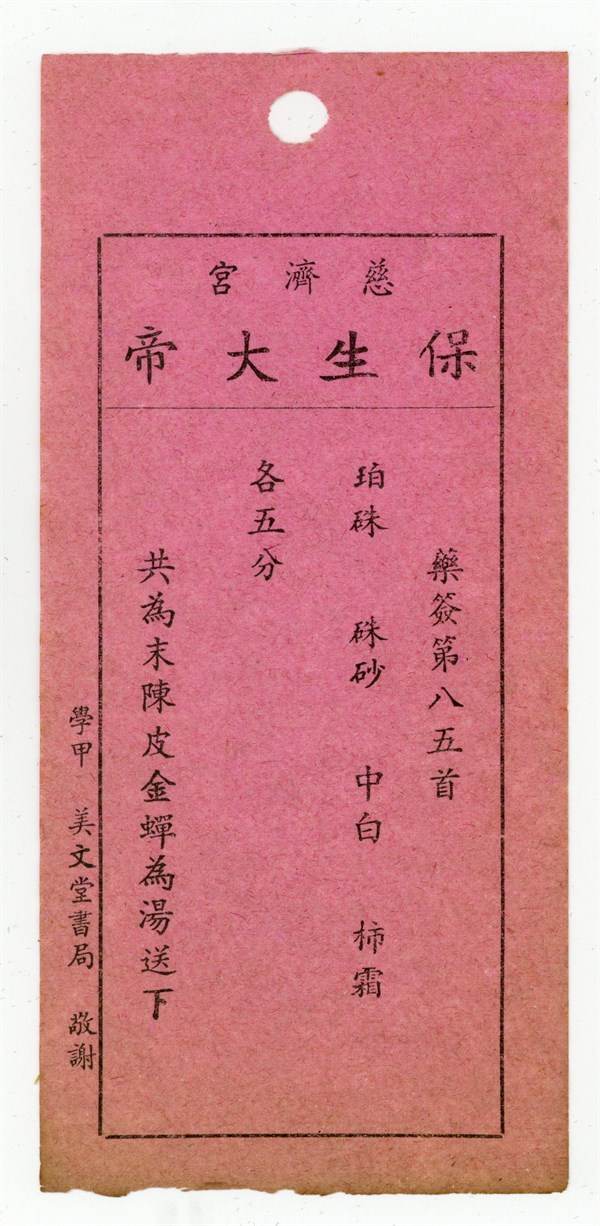 慈濟宮
保生大帝
藥簽第八五首
珀硃　硃砂　中白　柿霜
各五分
共為末陳皮金蟬為湯送下
學甲　美文堂書局　敬謝